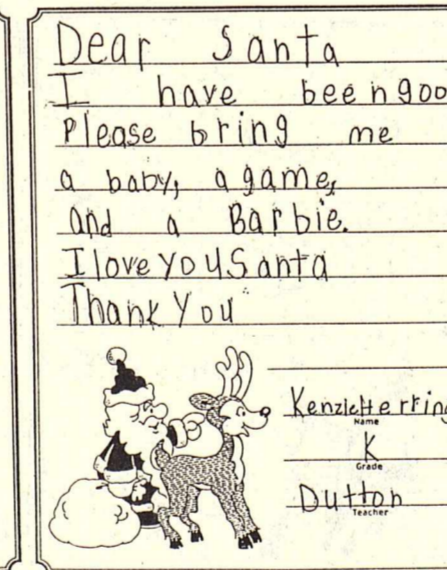 Dear Santa
I have been goo
Please bring me
a baby, a game,
and a Barbie.
I love you Santa
Thank You
Kenzie Herring
Name
K
Grade
Dutton
Teacher